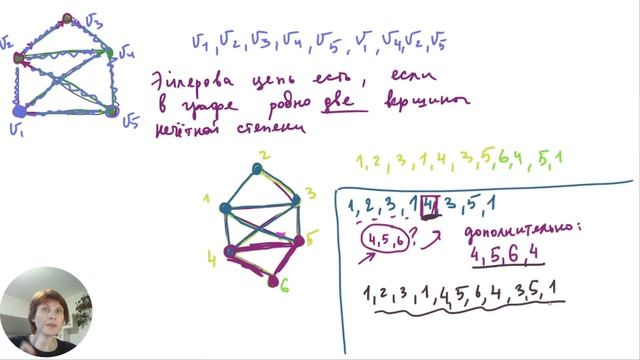 v₃
v₂
v₄
v₁
v₅
v₁, v₂, v₃, v₄, v₅, v₁, v₄, v₂, v₅
Эйлерова цепь есть, если
в графе ровно две вершины
нечётной степени
1, 2, 3, 1, 4, 3, 5, 6, 4, 5, 1
2
1
3
4
5
6
1, 2, 3, 1, 4, 3, 5, 1
4, 5, 6 ?
дополнительно:
4, 5, 6, 4
1, 2, 3, 1, 4, 5, 6, 4, 3, 5, 1